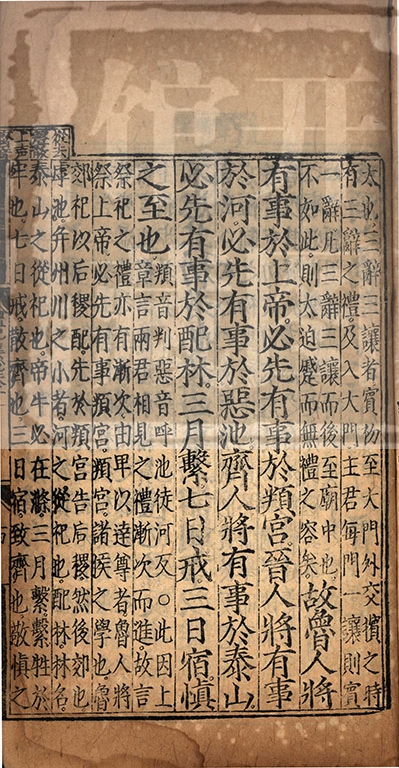 太也三辭三讓者賓初至大門外交擯之時
有三辭之禮及入大門主君每門一讓則賓
一辭凡三辭三讓而後至廟中也
不如此則大迫蹙而無禮之容矣
故魯人將
有事於上帝必先有事於頖宮晉人將有事
於河必先有事於惡池齊人將有事於泰山
必先有事於配林三月繫七日戒三日宿慎
之至也
頖音判惡音呼池徒河反○此因上
章言兩君相見之禮漸次而進故言
祭祀之禮亦有漸次由卑以達尊者魯人將
祭上帝必先有事頖宮頖宮諸侯之學也魯
郊祀以后稷配先於頖宮告后稷然後郊也
虖池并州川之小者河之從祀也配林林名
泰山之從祀也帝牛必在滌三月繫繫牲於
牢也七日戒散齊也三日宿致齊也敬慎之